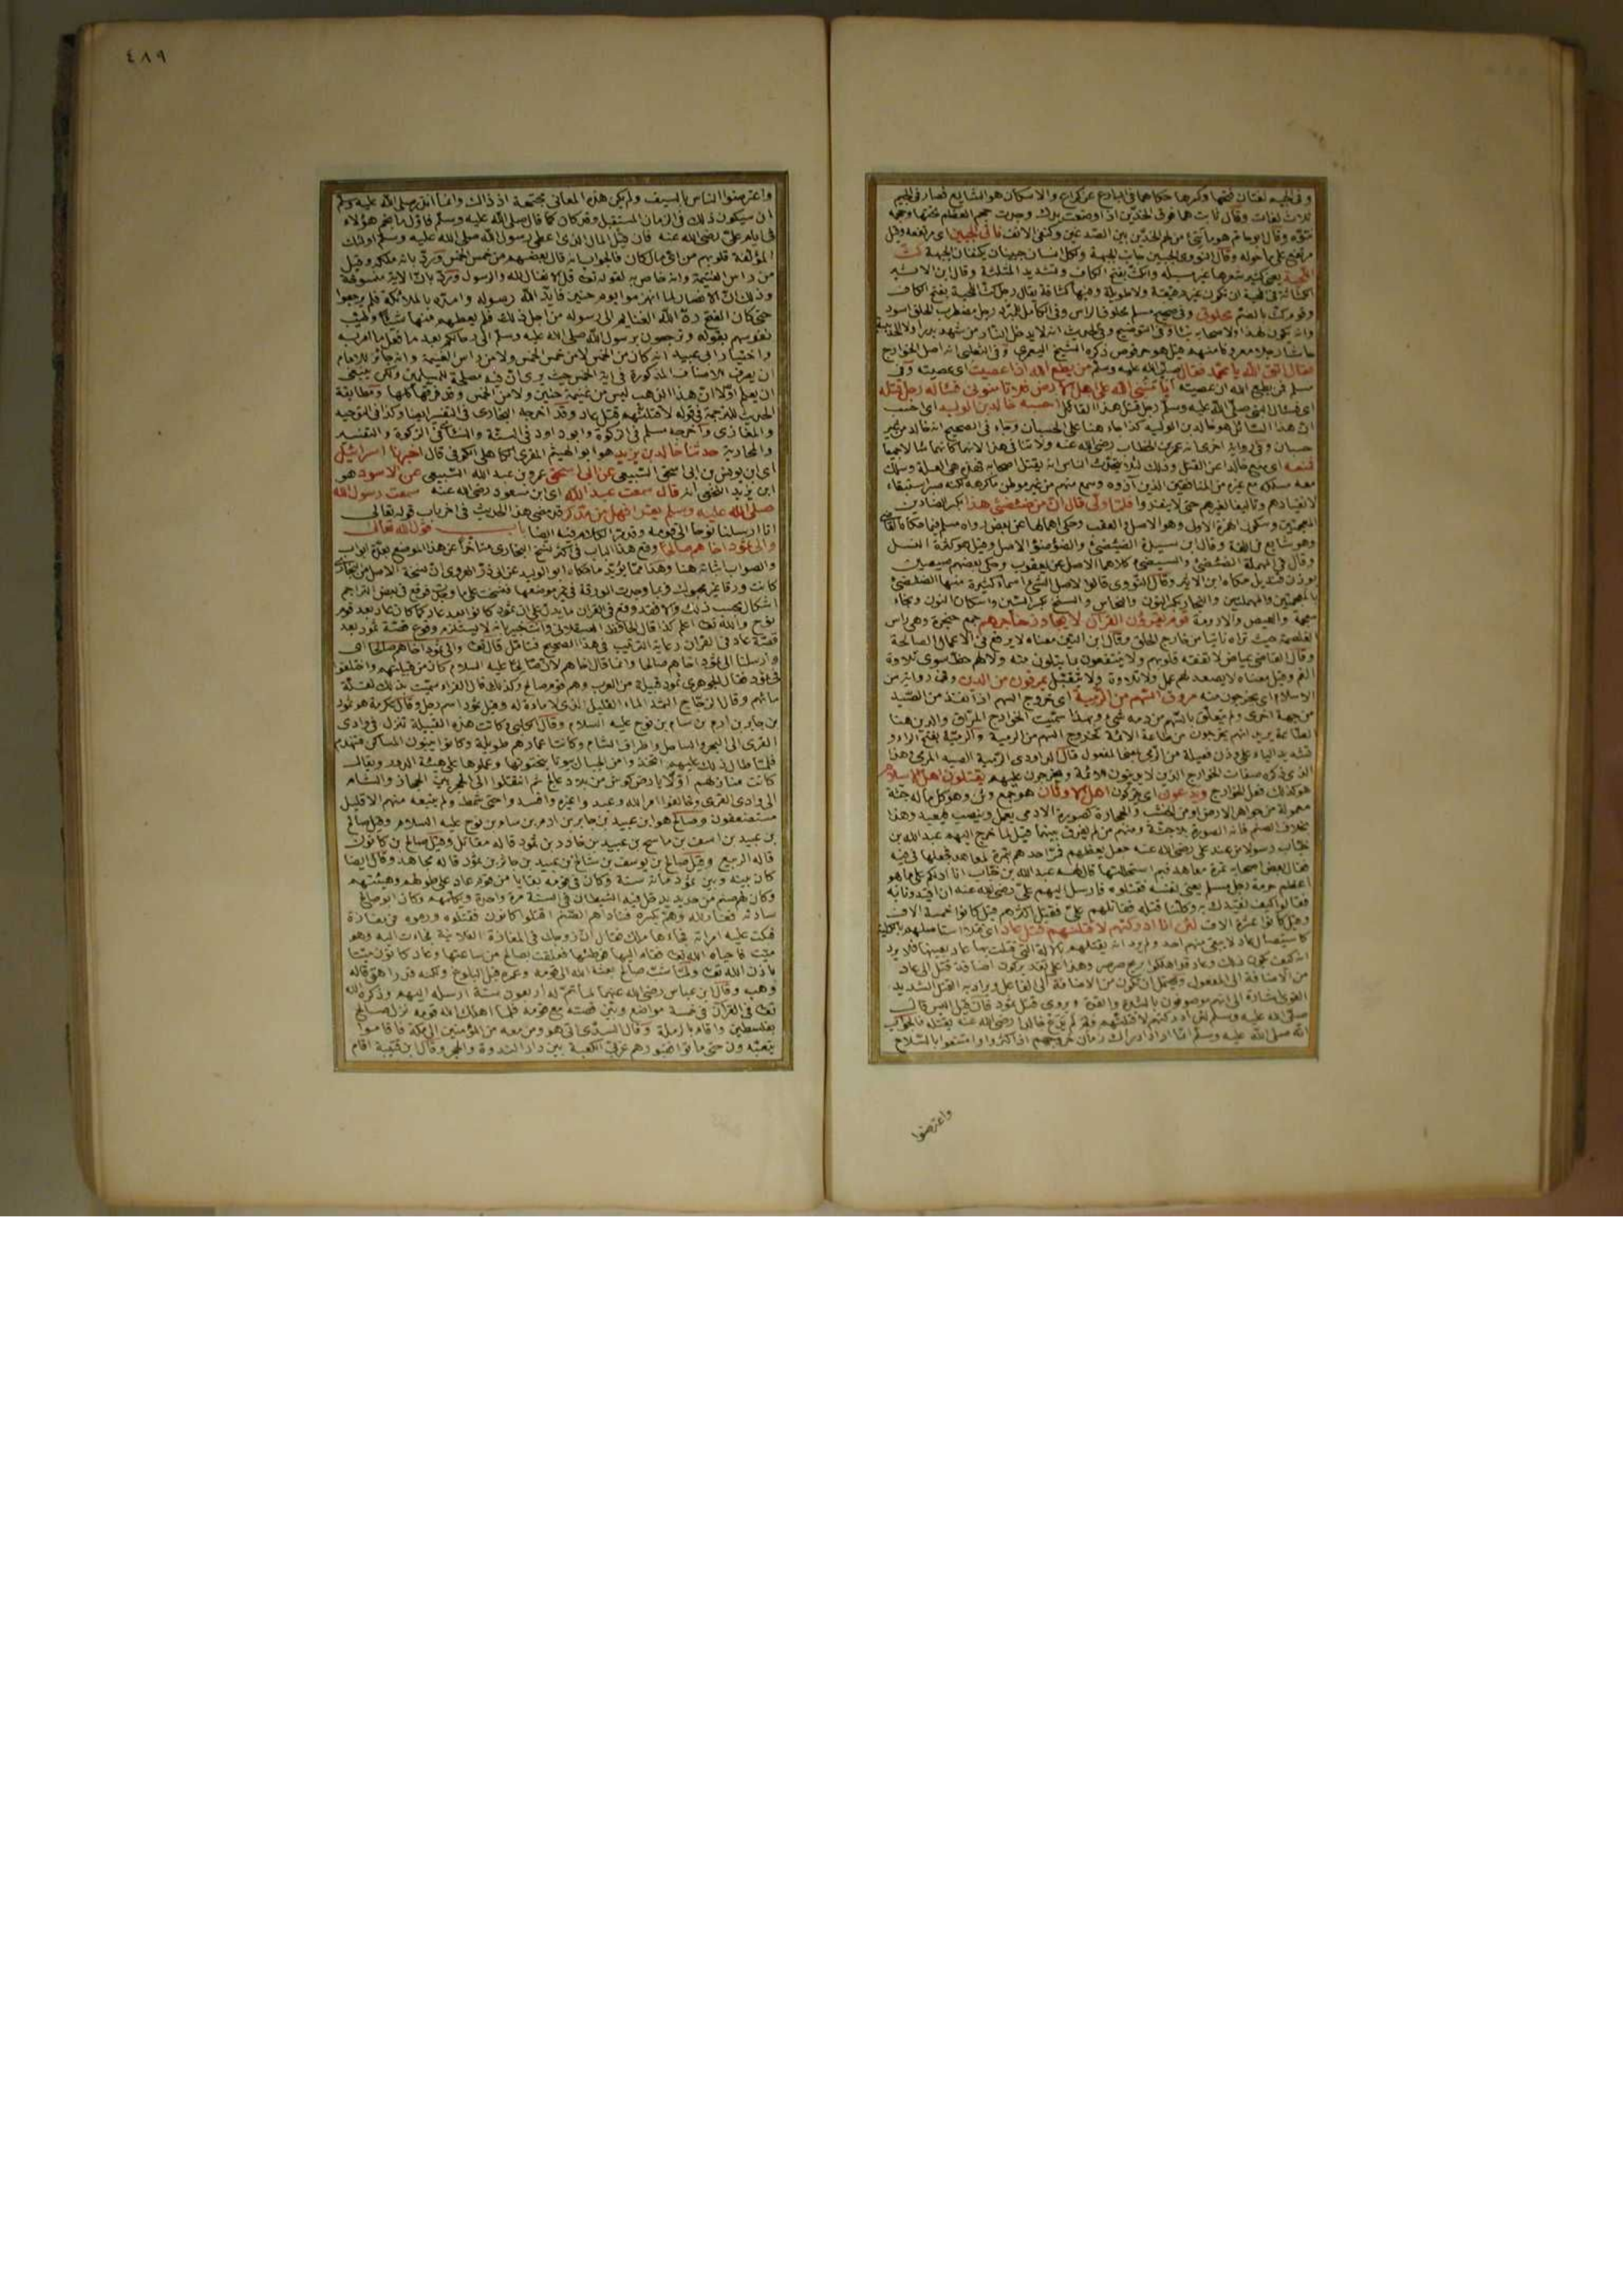 وفى الجيم لغتان فتحها وكسرها حكاهما فى البارع عن كراع والاسكان هو الشايع فصار فى الجيم
ثلاث لغات وقال ثابت هما فوق الخدين اذا وضعت يدك وجدت حجم العظام تحتها
وقال ابو حاتم هو ما نتئ من لحم الخدين بين الصدغين وكنفى الانف ناتى الجبين اى مرتفعه وقيل
مرتفع على ما حوله وقال النووى الجبين جانب الجبهة ولكل انسان جبينان يكتنفان الجبهة كث
اللحية يعنى كثير شعرها غير مسبلة والكث بفتح الكاف وتشديد المثلثة وقال ابن الاثير
الكثاثة فى اللحية ان تكون غير دقيقة ولا طويلة وفيها كثافة يقال رجل كث اللحية بفتح الكاف
وقوم كث بالضم محلوق وفى صحيح مسلم محلوق الراس وفى الكامل للمبرد رجل مضطرب الخلق اسود
فقال اتق الله يا محمد فقال صلى الله عليه وسلم من يطع الله اذا عصيت اى عصيته وفى
مسلم فمن يطيع الله ان عصيته ايأمننى الله على اهل الارض فلا تأمنونى فساله رجل قتله
اى فسال النبى صلى الله عليه وسلم رجل قتل هذا القائل احسبه خالد بن الوليد اى احسب
ان هذا السائل هو خالد بن الوليد كذا جاء هنا على الحسبان وجاء فى الصحيح انه خالد من غير
حسبان وفى رواية اخرى انه عمر بن الخطاب رضى الله عنه ولا تنافى فى هذا لانهما كانهما سالا جميعا
فمنعه اى منع خالدا عن القتل وذلك لئلا يتحدث الناس انه يقتل اصحابه فهذه هى العلة وسلك
معه مسلكه مع غيره من المنافقين الذين آذوه وسمع منهم فى غير موطن ما كرهه لكنه صبر استبقاء
لانقيادهم وتاليفا لغيرهم حتى لا ينفروا فلما ولى قال ان من ضئضئ هذا بكسر الضادين
المعجمتين وسكون الهمزة الاولى وهو الاصل والعقب
يوزن قنديل حكاه ابن الاثير وقال النووى قالوا لاصل الشئ اسماء كثيرة منها الضئضئ
قوم يقرؤن القران لا يجاوز حناجرهم جمع حنجرة وهى راس
الغلصمة حيث تراه ناتيا من خارج الحلق وقال ابن التين معناه لا يرفع فى الاعمال الصالحة
وقال القاضى عياض لا تفقه قلوبهم ولا ينتفعون بما يتلون منه ولا لهم حظ سوى تلاوة
الفم وقيل معناه لا يصعد لهم عمل ولا تلاوة ولا تتقبل يمرقون من الدين وفى رواية من
الاسلام اى يخرجون منه مروق السهم من الرمية اى خروج السهم اذا نفذ من الصيد
من جهة اخرى ولم يتعلق بالسهم من دمه شئ وبهذا سميت الخوارج المراق والدين هنا
الطاعة يريد انهم يخرجون من طاعة الائمة كخروج السهم من الرمية والرمية بفتح الراء و
تشديد الياء على وزن فعيلة من الرمى بمعنى المفعول قال الداودى الرمية الصيد المرمى وهذا
الذى ذكره صفات الخوارج الذين لا يدينون للائمة ويخرجون عليهم يقتلون اهل الاسلام
هو كذلك فعل الخوارج ويدعون اى يتركون اهل الاوثان هو جمع وثن وهو كل ما له جثة
معمولة من جواهر الارض او من الخشب والحجارة كصورة الادمى يعمل وينصب فيعبد وهذا
بخلاف الصنم فانه الصورة بلا جثة ومنهم من لم يفرق بينهما قيل لما خرج اليهم عبد الله بن
خباب رسولا من عند على رضى الله عنه جعل يعظهم فمر احدهم بتمرة لمعاهد فجعلها فى فيه
فقال بعض اصحابه تمرة معاهد فبم استحللتها قال لهم عبد الله بن خباب انا ادلكم على ما هو
اعظم حرمة رجل مسلم يعنى نفسه فقتلوه فارسل اليهم على رضى الله عنه ان اقيدونا به
فقالوا كيف نقيدك به وكلنا قتله فقاتلهم على فقتل اكثرهم قيل كانوا خمسة الاف
وقيل كانوا عشرة الاف لئن انا ادركتهم لاقتلنهم قتل عاد
من الاضافة الى المفعول ويحتمل ان يكون من الاضافة الى الفاعل ويراد به القتل الشديد
القوى اشارة الى انهم موصوفون بالشدة والقوة ويروى قتل ثمود فان قيل اليس قال
صلى الله عليه وسلم لئن ادركتهم لاقتلنهم فلم لم يدع خالدا رضى الله عنه يقتله فالجواب
انه صلى الله عليه وسلم انما اراد ادراك زمان خروجهم اذا كثروا وامتنعوا بالسلاح
واعترضوا
٤٨٩
واعترضوا الناس بالسيف ولم تكن هذه المعانى مجتمعة اذ ذاك وانما انذر صلى الله عليه وسلم
ان سيكون ذلك فى الزمان المستقبل وقد كان كما قال صلى الله عليه وسلم فاول ما نجم هؤلاء
فى ايام على رضى الله عنه فان قيل المال الذى اعطى رسول الله صلى الله عليه وسلم اولئك
المؤلفة قلوبهم من اى مال كان فالجواب انه قال بعضهم من خمس الخمس ورد بانه ملكه وقيل
من راس الغنيمة وانه خاص به لقوله تعالى قل الانفال لله والرسول ورد بان الاية منسوخة
وذلك ان الانصار لما انهزموا يوم حنين فايد الله رسوله وامده بالملائكة فلم يرجعوا
حتى كان الفتح رد الله الغنايم الى رسوله من اجل ذلك فلم يعطهم منها شيئا وطيب
نفوسهم بقوله وترجعون برسول الله صلى الله عليه وسلم الى رحالكم بعد ما فعل ما امر به
واختيار ابى عبيدة انه كان من الخمس لا من خمس الخمس ولا من راس الغنيمة وانه جائز للامام
ان يصرف الاصناف المذكورة فى اية الخمس حيث يرى ان فيه مصلحة للمسلمين ولكن ينبغى
ان يعلم اولا ان هذا الذهب ليس من غنيمة حنين ولا من الخمس وقد فرقها كلها ومطابقة
الحديث للترجمة فى قوله لاقتلنهم قتل عاد وقد اخرجه البخارى فى التفسير ايضا وكذا فى التوحيد
والمغازى واخرجه مسلم فى الزكوة وابو داود فى السنة والنسائى فى الزكوة والتفسير
والمحاربة حدثنا خالد بن يزيد هو ابو الهيثم المقرئ الكاهلى الكوفى قال اخبرنا اسرائيل
اى ابن يونس بن ابى اسحق السبيعى عن ابى اسحق عمرو بن عبد الله السبيعى عن الاسود هو
ابن يزيد النخعى انه قال سمعت عبد الله اى ابن مسعود رضى الله عنه سمعت رسول الله
صلى الله عليه وسلم يقرا فهل من مدكر قد مضى هذا الحديث فى اخر باب قوله تعالى
انا ارسلنا نوحا الى قومه وقد مر الكلام فيه ايضا باب قول الله تعالى
والى ثمود اخاهم صالحا وقع هذا الباب فى اكثر نسخ البخارى متاخرا عن هذا الموضع بعدة ابواب
والصواب اثباته هنا وهذا مما يؤيد ما حكاه ابو الوليد عن ابى ذر الهروى ان نسخة الاصل من البخارى
كانت ورقا غير محبوك فربما وجدت الورقة فى غير موضعها فنسخت على ما وجدت فوقع فى بعض التراجم
اشكال بحسب ذلك والا فقد وقع فى القران ما يدل على ان ثمود كانوا بعد عاد كما كان عاد بعد قوم
نوح والله تعالى اعلم كذا قال الحافظ العسقلانى وانت خبير بانه لا يستلزم وقوع قصة ثمود بعد
قصة عاد فى القران رعاية الترتيب فى هذا الصحيح فتامل قال تعالى والى ثمود اخاهم صالحا اى
وارسلنا الى ثمود اخاهم صالحا وانما قال اخاهم لان صالحا عليه السلام كان من قبيلتهم واختلفوا
فى ثمود فقال الجوهرى ثمود قبيلة من العرب وهم قوم صالح وكذلك قال الفراء سميت بذلك لقلة
مائهم وقال الزجاج الثمد الماء القليل الذى لا مادة له وقيل ثمود اسم رجل وقال عكرمة هو ثمود
بن جابر بن ارم بن سام بن نوح عليه السلام وقال الكلبى وكانت هذه القبيلة تنزل فى وادى
القرى الى البحر والساحل واطراف الشام وكانت اعمارهم طويلة وكانوا يبنون المساكن فتهدم
فلما طال ذلك عليهم اتخذوا من الجبال بيوتا ينحتونها وعملوها على هيئة الدور ويقال
كانت منازلهم اولا بارض كوش من بلاد عالج ثم انتقلوا الى الحجر بين الحجاز والشام
الى وادى القرى وخالفوا امر الله وعبدوا غيره وافسدوا حتى شمط ولم يتبعه منهم الا قليل
مستضعفون وصالح هو ابن عبيد بن جابر بن ارم بن سام بن نوح عليه السلام وقيل صالح
بن عبيد بن اسف بن ماسح بن عبيد بن خادر بن ثمود قاله مقاتل وقيل صالح بن كانون
قاله الربيع وقيل صالح بن يوسف بن شالخ بن عبيد بن جائر بن ثمود قاله مجاهد وقال ايضا
كان بينه وبين ثمود مائة سنة وكان فى قومه بقايا من قوم عاد على طولهم وهيئتهم
وكان لهم صنم من حديد يدخل فيه الشيطان فى السنة مرة واحدة ويكلمهم وكان ابو صالح
سادنه فغار لله وهم بكسره فناداهم الصنم اقتلوا كانون فقتلوه ورموه فى مغارة
فبكت عليه امراته فجاءها ملك فقال ان زوجك فى المغارة الفلانية فجاءت اليه وهو
ميت فاحياه الله تعالى فقام اليها فوطئها فعلقت بصالح من ساعتها وعاد كانون ميتا
باذن الله تعالى ولما شب صالح بعثه الله الى قومه وعمره قبل البلوغ ولكنه قد راهق قاله
وهب وقال ابن عباس رضى الله عنهما لما تم له اربعون سنة ارسله اليهم وذكره الله
تعالى فى القرآن فى خمسة مواضع وبين قصته مع قومه فلما اهلك الله قومه نزل صالح
بفلسطين واقام بالرملة وقال السدى اتى هو ومن معه من المؤمنين الى مكة فاقاموا
يتعبدون حتى ماتوا فقبورهم غربى الكعبة بين دار الندوة والحجر وقال ابن قتيبة اقام